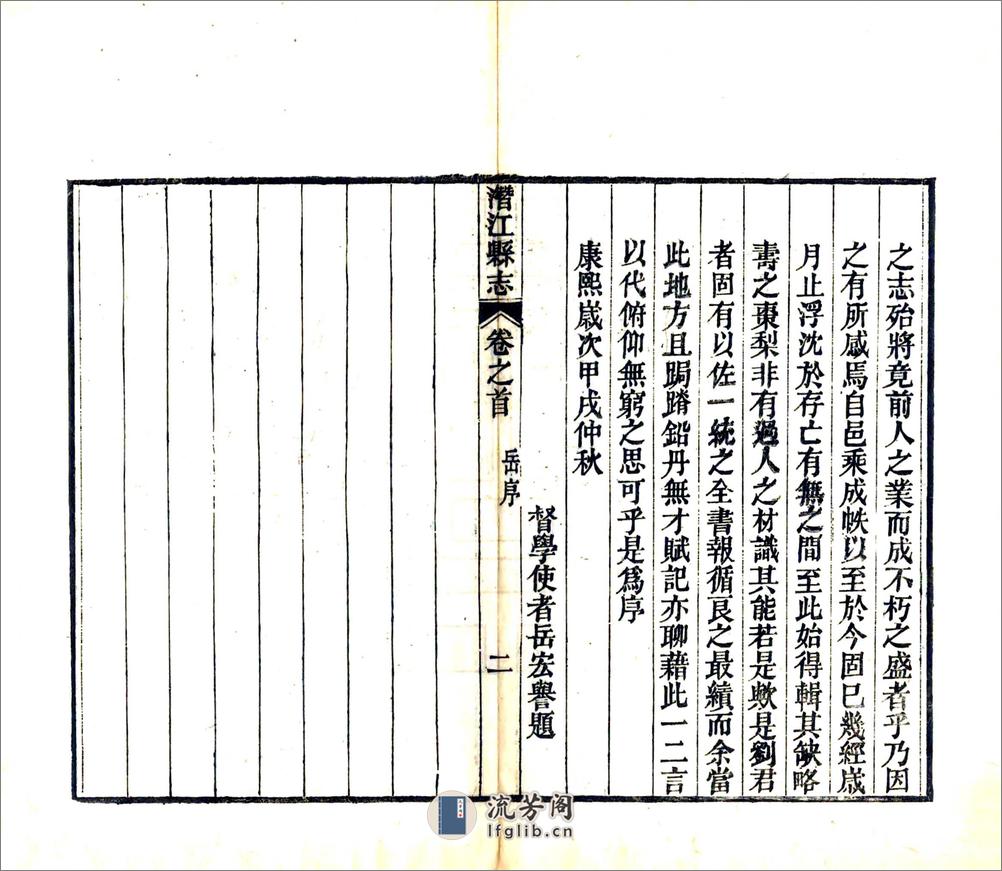 之志殆將竟前人之業而成不朽之盛者乎乃因
之有所感焉自邑乘成帙以至於今固已幾經歲
月止浮沈於存亡有無之間至此始得輯其缺略
壽之棗梨非有過人之材識其能若是歟是劉君
者固有以佐一統之全書報循良之最績而余當
此地方且跼蹐鉛丹無才賦記亦聊藉此一二言
以代俯仰無窮之思可乎是爲序
康熙歲次甲戌仲秋
督學使者岳宏譽題
潛江縣志
卷之首
岳序
二
流芳阁
lfglib.cn